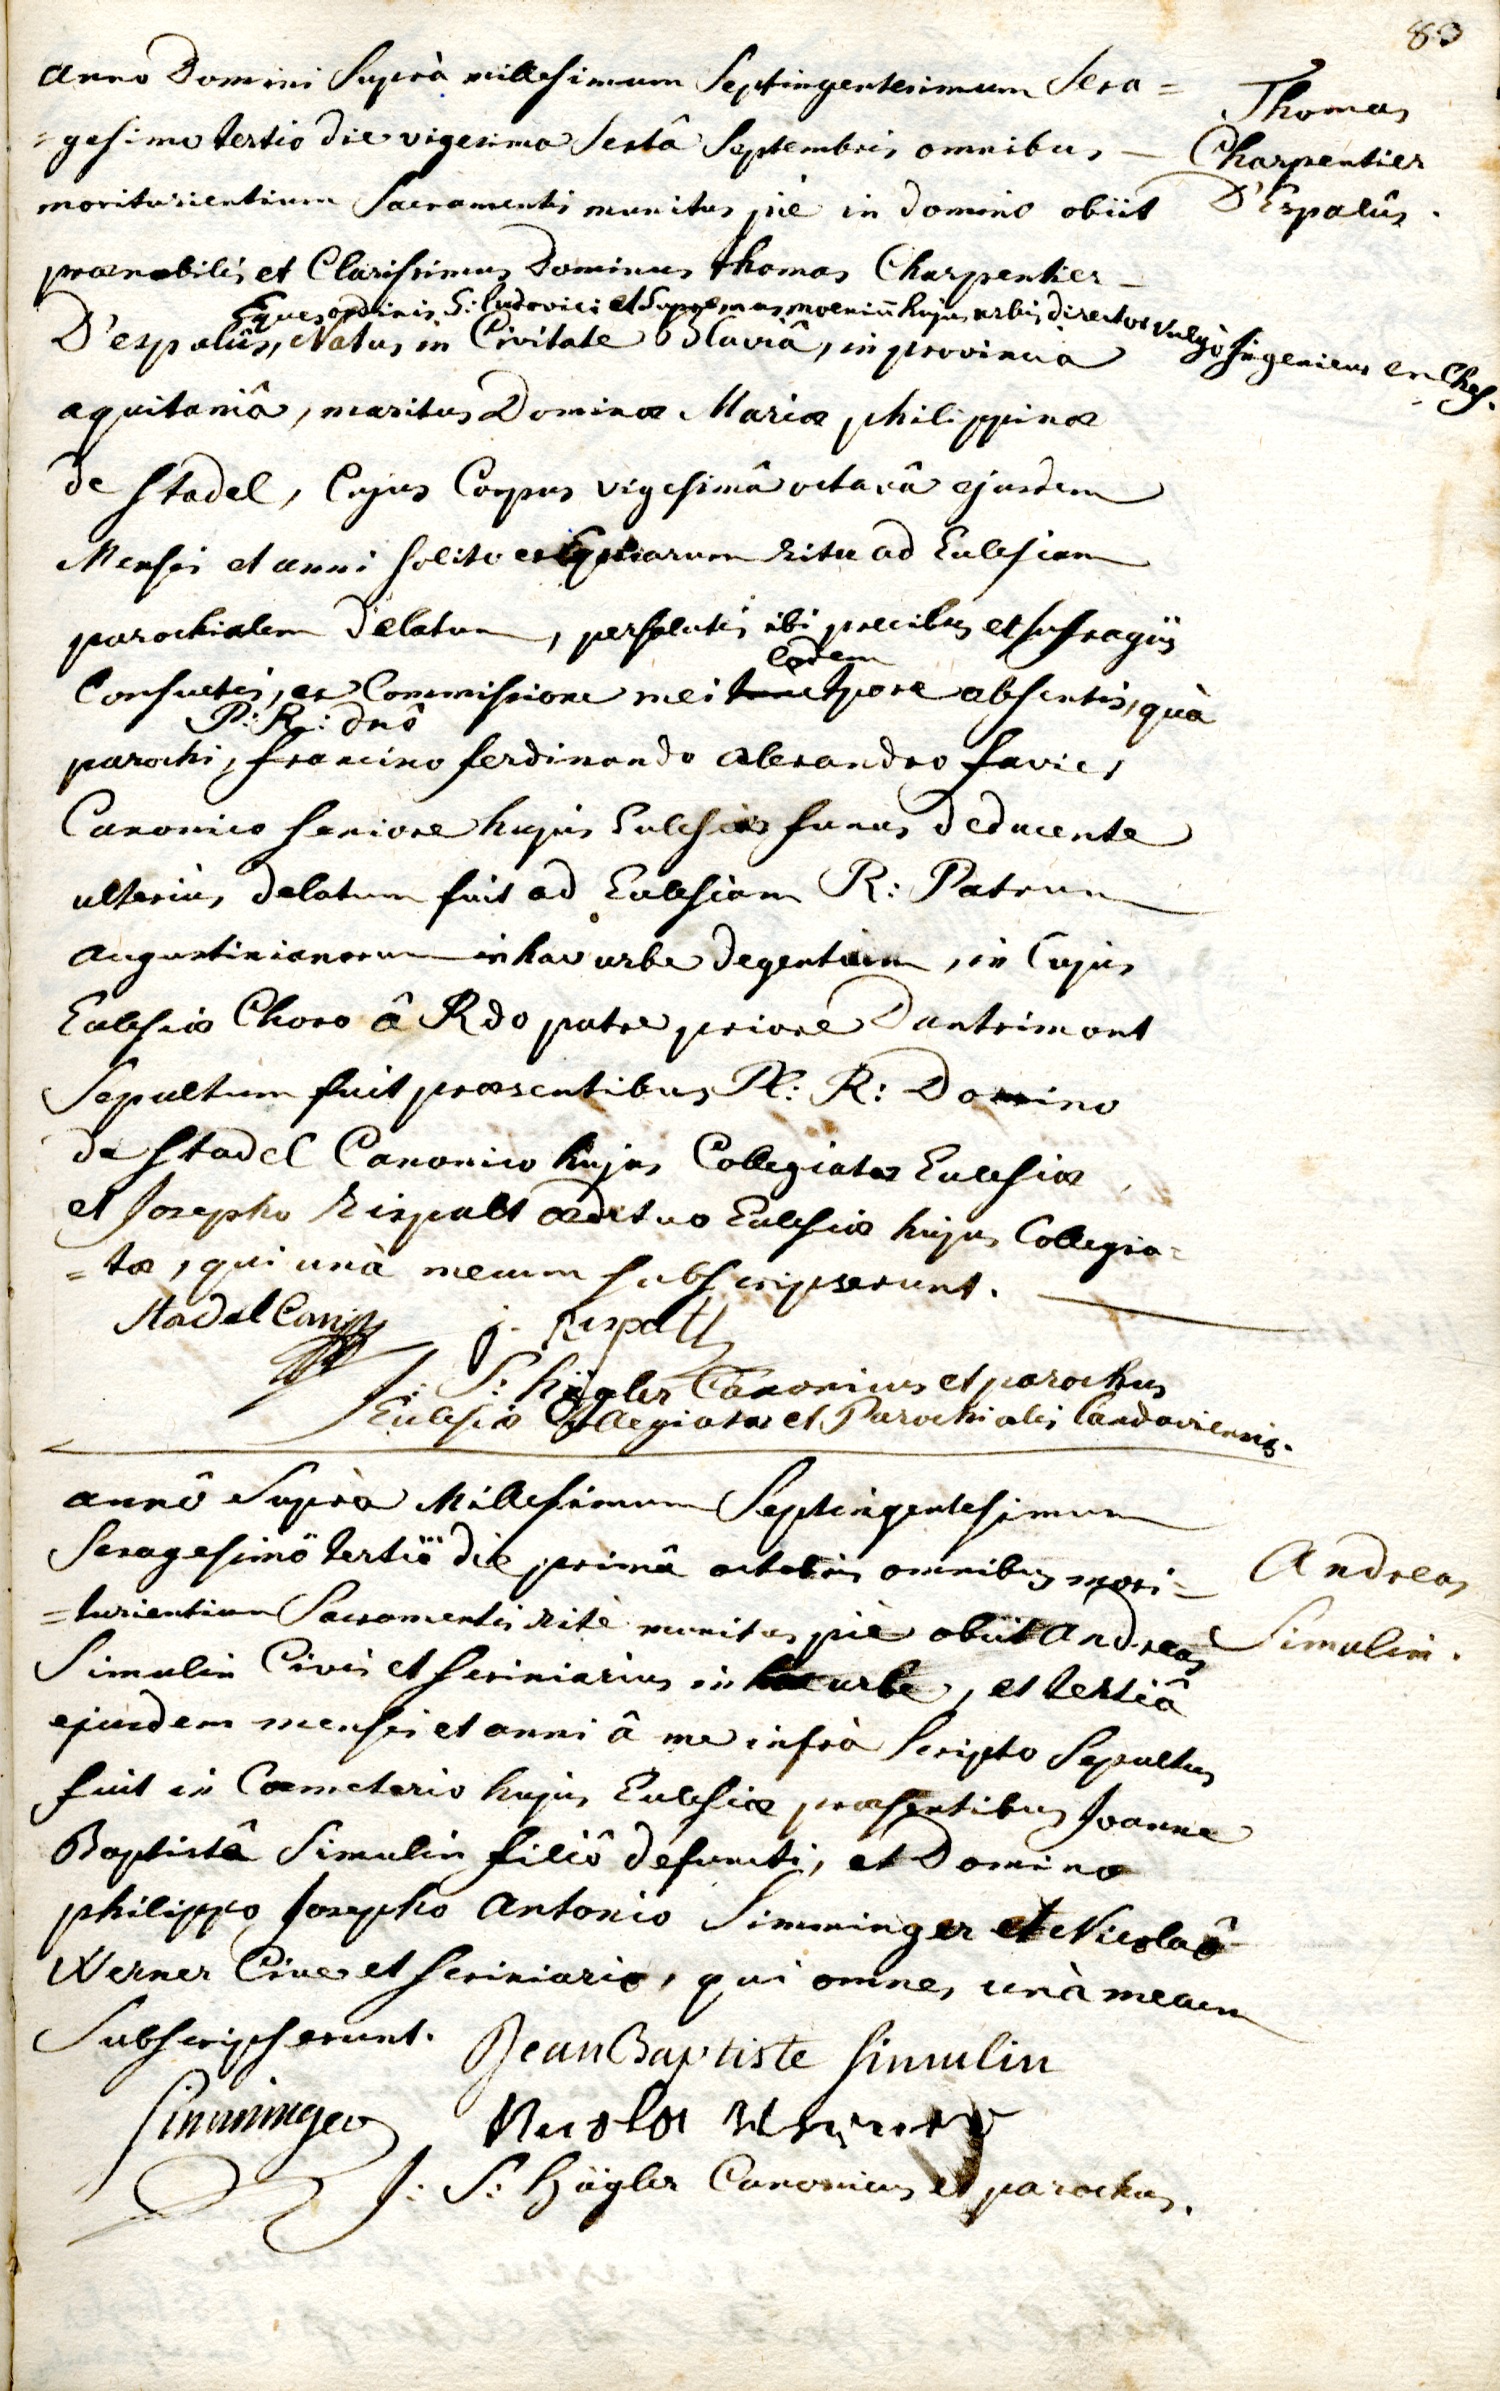 83
Anno Domini Suprà millesimum Septingentesimum Sexa=
=gesimo tertio die vigesima Sextâ Septembris omnibus
moriturientium Sacramentis munitus piè in domino obiit
prænobilis et Clarissimus Dominus thomas Charpentier
Eques ordinis S: Ludovici et Supremus moeniū hujus urbis director vulgò Ingenieur en Chef.
D'espalûs, Natus in Civitate Blaviâ, in provincia
aquitaniâ, maritus Dominæ Mariæ philippinæ
de Stadel, Cujus Corpus vigesimâ octavâ ejusdem
Mensis et anni solito exequiarum ritu ad Eclesiam
parochialem delatum, persolutis ibi precibus et sufragiis
Consuetis, ex Commissione mei eodem tpore absentis, quà
P: R: dnô
parochi, francisco ferdinando alexandro favier
Canonico seniore hujus Eclesiæ funus deducente
ulteriùs delatum fuit ad Eclesiam R: Patrum
augustinianorum in hac urbe degentium, in Cujus
Eclesiæ Choro â Rdo patre priore Dantrimont
Sepultum fuit præsentibus Pl: R: Domino
de Stadel Canonico hujus Collegiatæ Eclesiæ
et Josepho Rispalt ædituo Eclesiæ hujus Collegia=
=tæ, qui unà mecum subscripserunt.
Stadel Can
j. Rispalt
J: S: Hügler Canonicus et parochus
Eclesiæ Collegiatæ et Parochialis Landaviensis.
Thomas
Charpentier
D'Espalûs.
annô Suprà Millesimum Septingentesimum
Sexagesimô tertiô die primâ octobris omnibus mori=
=turientium Sacramentis ritè munitus piè obiit Andreas
Simulin Civis et scriniarius in hac urbe, et tertiâ
ejusdem mensis et anni â me infrà Scripto Sepultus
fuit in Cœmeterio hujus Eclesiæ præsentibus Joanne
Baptistâ Simulin filiô defuncti, et Domino
philippo Josepho Antonio Simminger et Nicolaô
Werner Cive et scriniario, qui omnes unà mecum
Subscripserunt.
Jean Baptiste Simulin
Simminger
J: S: Hügler Canonicus et parochus.
Andreas
Simulin.